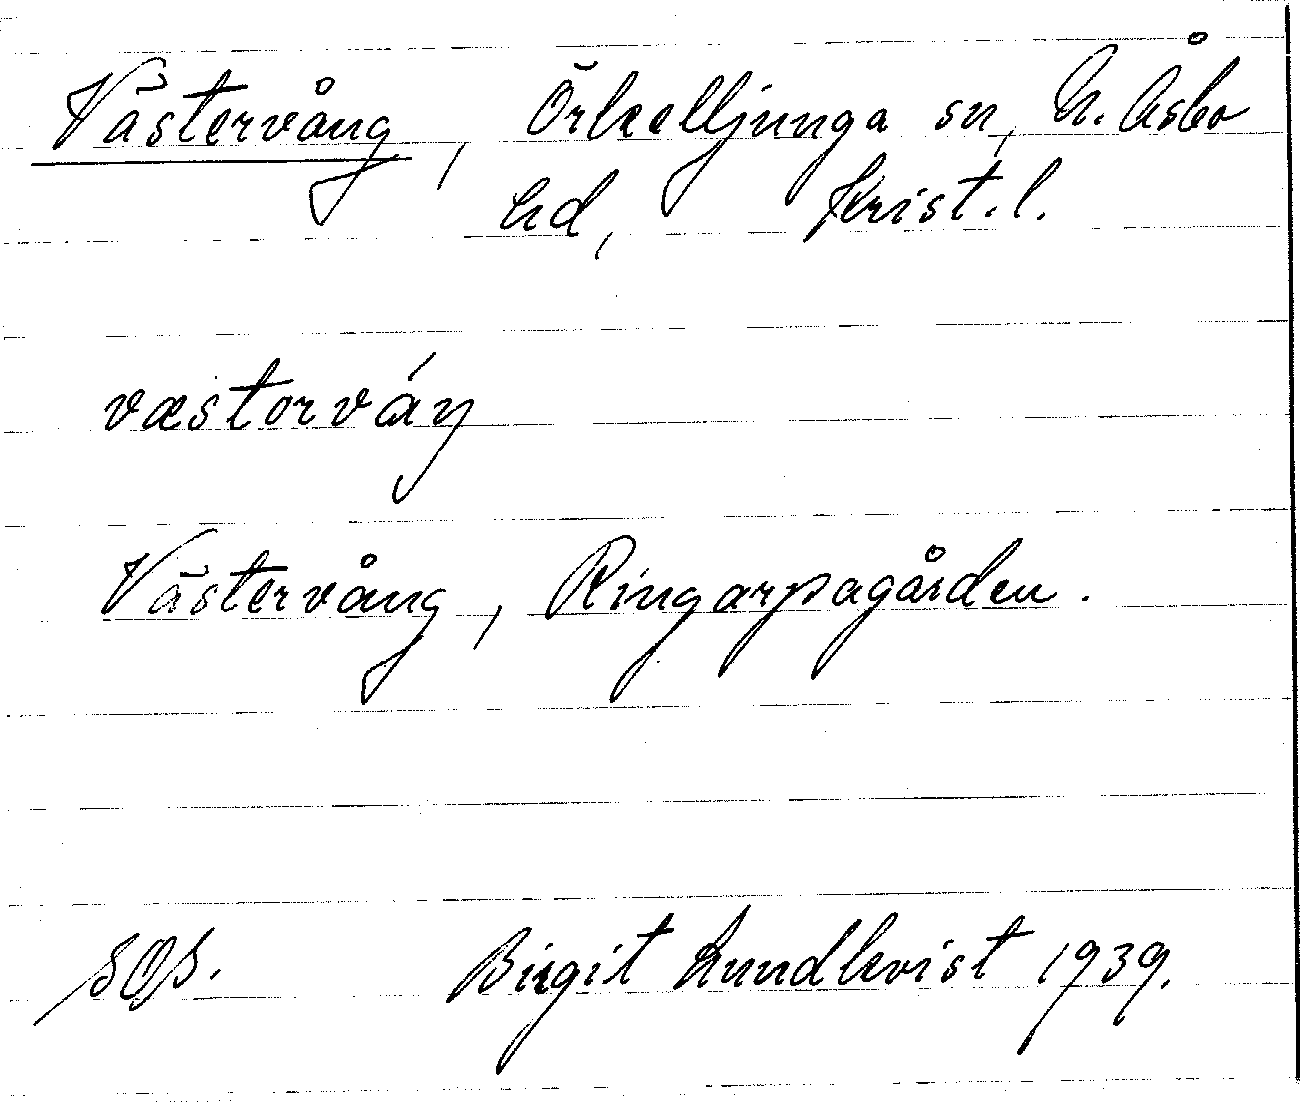 Västervång, Örkelljunga sn, N. Åsbo
hd, Krist. l.
væstorváŋ
Västervång, Ringarpagården.
SOS. Birgit Lundkvist 1939.